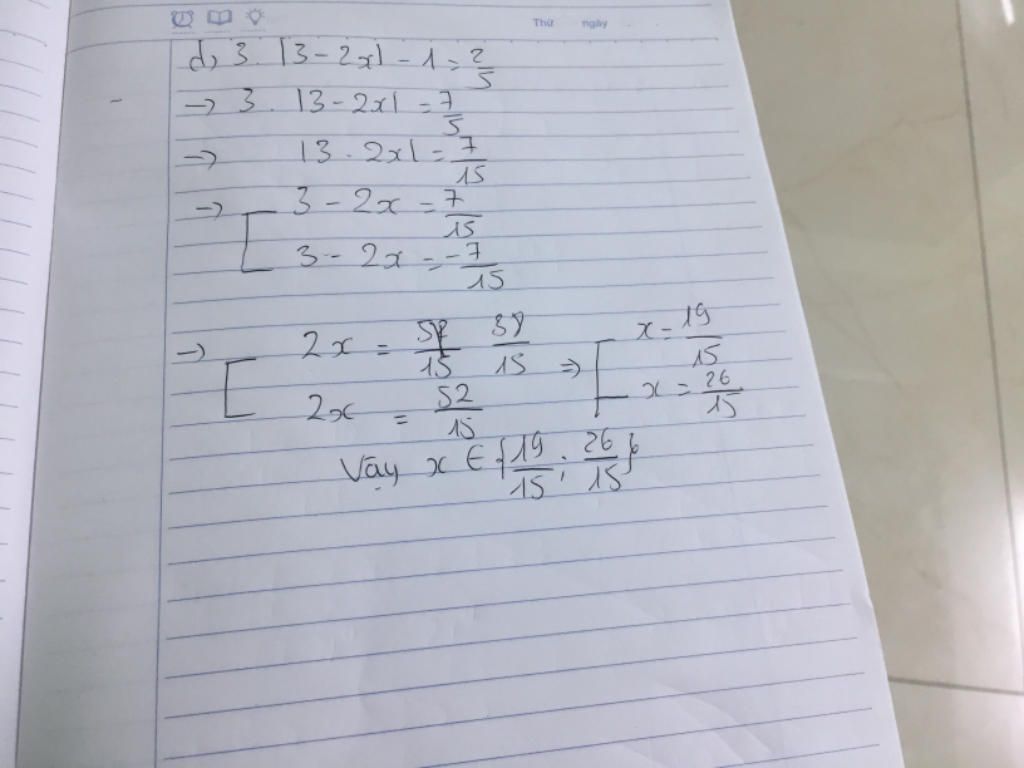 Thứ ngày
d, 3. |3 - 2x| - 1 = 2/5
→ 3. |3 - 2x| = 7/5
→ |3 - 2x| = 7/15
→ [ 3 - 2x = 7/15
3 - 2x = -7/15
→ [ 2x = 38/15 ⇒ [ x = 19/15
2x = 52/15 x = 26/15
Vậy x ∈ {19/15; 26/15}